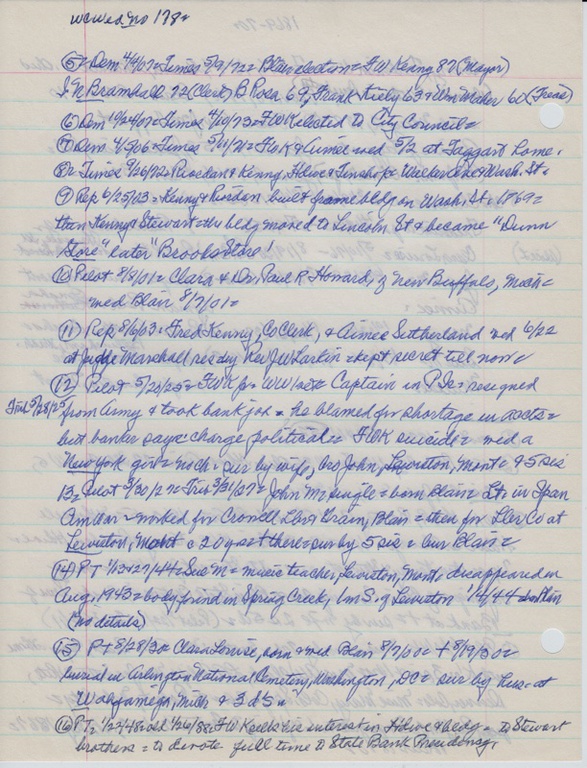 WCWed no 178=
⑤ Dem 4/4/07=Times 5/9/72= Blair election= FW Kenny 87 (Mayor)
I.N Bramhall 72 (Clerk) B Rosa 69, Frank 63 & Wm Maher 60 (Treas)
⑥ Dem 10/24/07=Times 4/10/73=FWK elected to City Council=
⑦ Dem 4/5/06=Times 5/11/71= FWK & Aimee wed 5/2 at Taggart home.
Times 9/26/72= Riordan & Kenny, Hdwe & Tinshop Wash. St=
⑨ Rep 6/25/03=Kenny & Riordan built frame bldg on Wash. St. 1869=
then Kenny & Stewart=the bldg moved to Lincoln St & became "Dunn
Store" later "Brooks Store!
⑩ Pilot 8/8/01= Clara & Dr. Paul R. Howard, of New Buffalo, Mich=
wed Blair 8/7/01=
⑪ Rep 8/6/03= Fred Kenny, Co Clerk, & Aimee Sutherland wed 6/22
at Judge Marshall resdy Rev JW Larkin=kept secret till now=
⑫ Pilot 5/20/25=FWK Jr= WW Captain in P.I.= resigned
Trib 5/28/25 from Army & took bank job = he blamed for shortage in accts=
but banker says charge political= FWK suicide= wed a
New York girl= no ch= sur by wife, bro John, Lewiston, Mont & 5 sis
13= Pilot 3/30/27=Trib 3/31/27= John M= single= born Blair= Lt= in Span
Am War= worked for Crowell Lbr & Grain, Blair= then for Lbr Co at
Lewiston, Mont = 20 yrs & there=sur by 5 sis= bur Blair=
⑭ PT 1/13 & 27/44= Sue M= music teacher, Lewiston, Mont= disappeared in
Aug, 1943=body found in Spring Creek, 1 m S. of Lewiston 1/4/44
(no details)
⑮ PT 8/28/30= Clara Louise, born & wed Blair 8/7/00= + 8/19/30=
burial in Arlington National Cemetery, Washington, DC= sur by hus. at
& 3 d 5=
⑯ PT, 1/22/48=old 1/26/88= FWK sells his interest in Hdwe & bldg = to Stewart
brothers = to devote full time to State Bank Presidency,